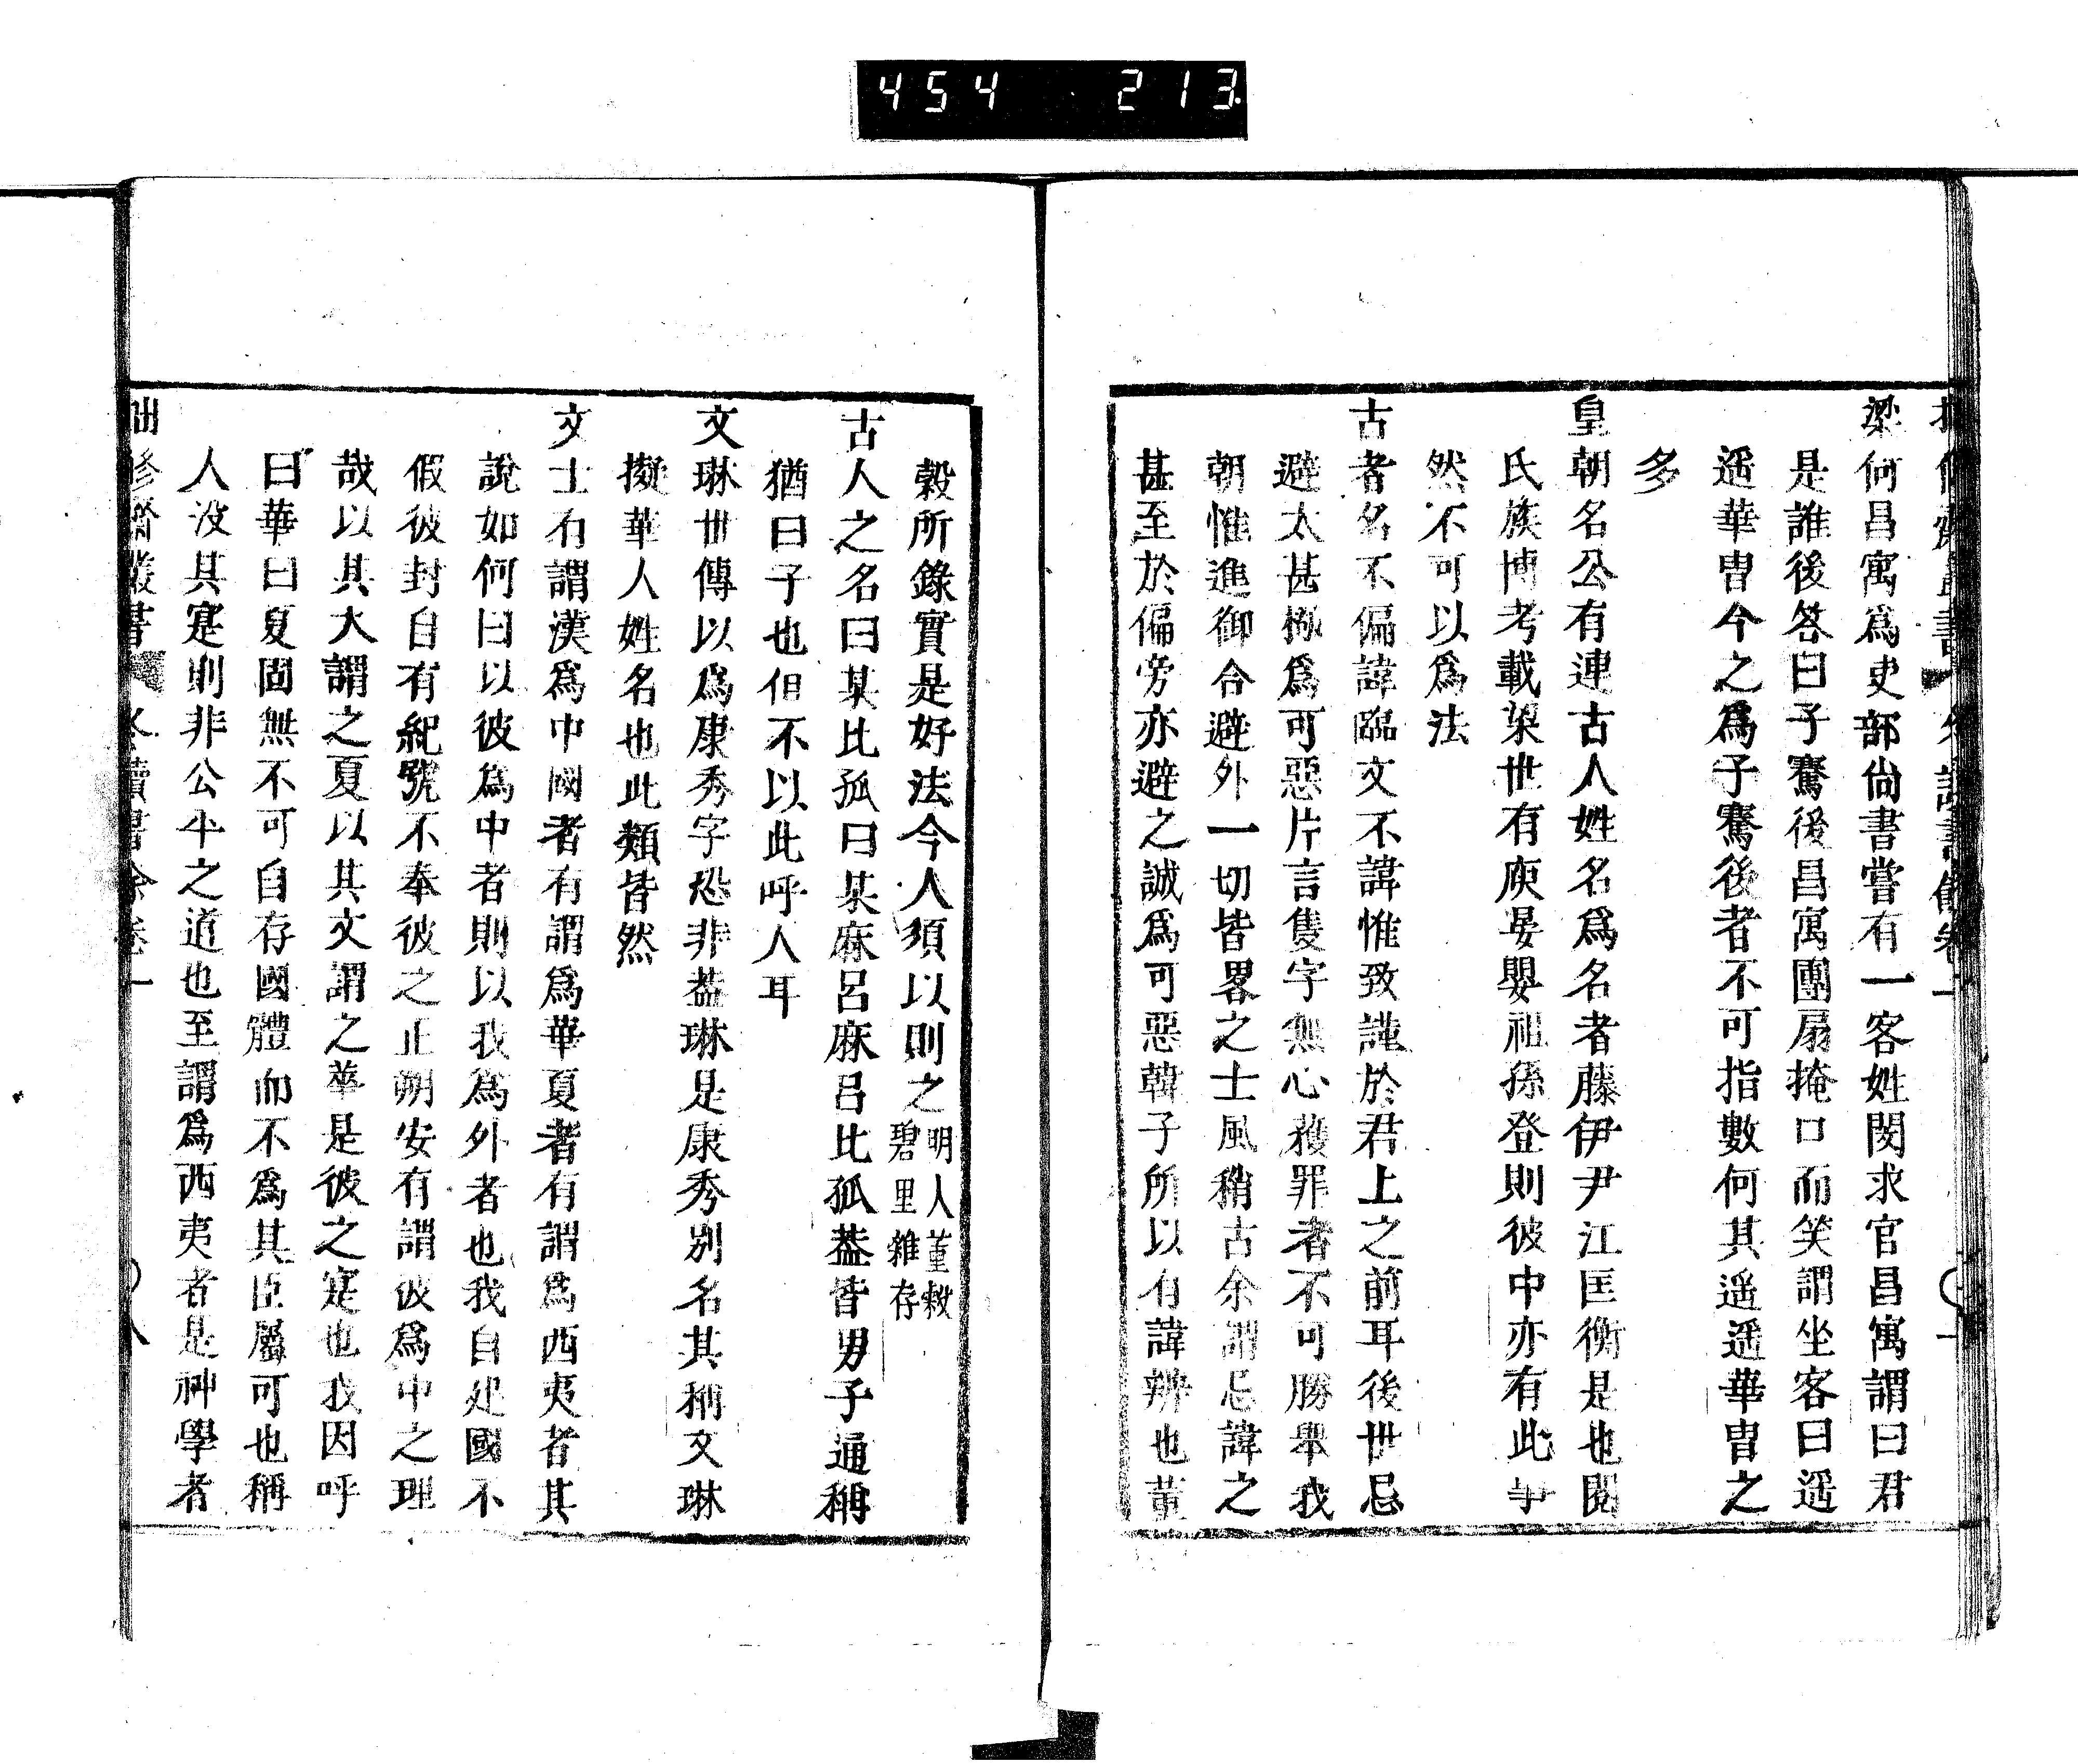 454 213
梁何昌寓爲吏部尚書嘗有一客姓閔求官昌寓謂曰君
是誰後答曰子騫後昌寓團扇掩口而笑謂坐客曰遥
遥華冑今之爲子騫後者不可指數何其遥遥華冑之
多
皇朝名公有連古人姓名爲名者藤伊尹江匡衡是也閲
氏族博考載梁世有庾晏嬰祖孫登則彼中亦有此事
然不可以爲法
古者名不偏諱臨文不諱惟致謹於君上之前耳後世忌
避太甚極爲可惡片言隻字無心獲罪者不可勝舉我
朝惟進御合避外一切皆畧之士風稍古余謂忌諱之
甚至於偏旁亦避之誠爲可惡韓子所以有諱辨也董
穀所錄實是好法今人須以則之明人董穀
碧里雜存
古人之名曰某比孤曰某麻呂麻呂比孤葢皆男子通稱
猶曰子也但不以此呼人耳
文琳世傳以爲康秀字恐非葢琳是康秀別名其稱文琳
擬華人姓名也此類皆然
文士有謂漢爲中國者有謂爲華夏者有謂爲西夷者其
說如何曰以彼爲中者則以我爲外者也我自建國不
假彼封自有紀號不奉彼之正朔安有謂彼爲中之理
哉以其大謂之夏以其文謂之華是彼之寔也我因呼
曰華曰夏固無不可自存國體而不爲其臣屬可也稱
人沒其寔則非公平之道也至謂爲西夷者是神學者
修齋叢書 讀書餘卷一 八